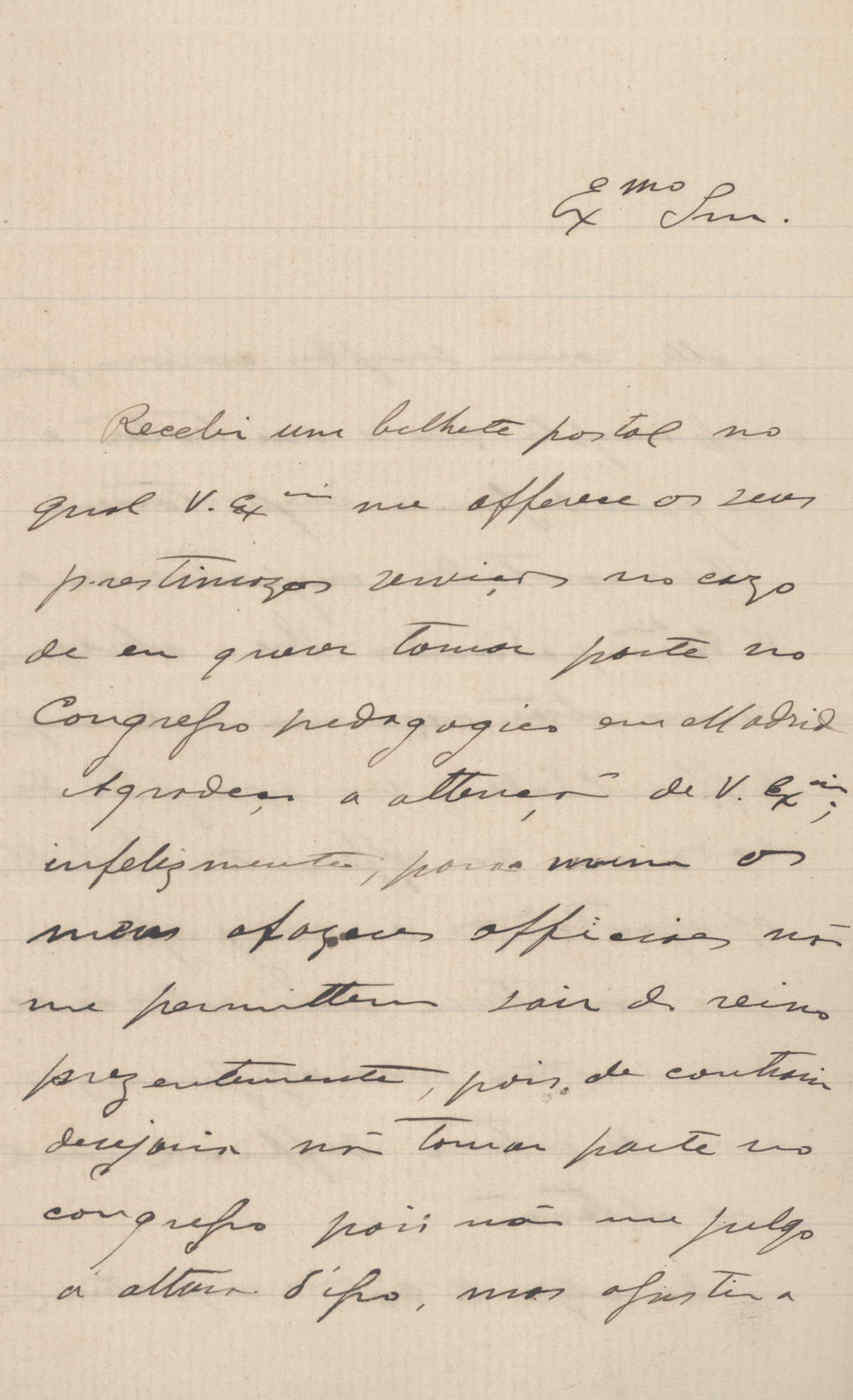 Ex.mo Snr.
Recebi um bilhete postal no
qual V. Exia me offerece os seus
prestimozos serviços no cazo
de eu querer tomar parte no
Congresso pedagogico em Madrid
Agradeço a attenção de V. Exia;
infelizmente, para mim os
meus afazeres officiaes não
me permittem sair do reino
prezentemente, pois, de contrario
desejaria não tomar parte no
congresso pois não me julgo
á altura d'isso, mas